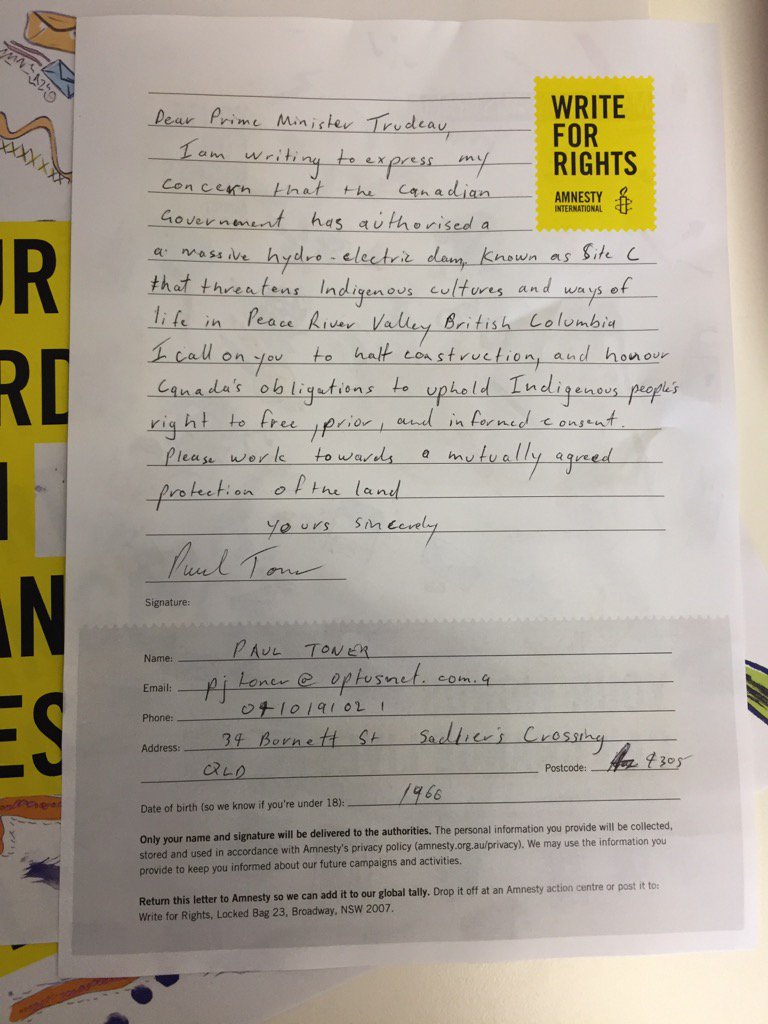 WRITE
FOR
RIGHTS
AMNESTY
INTERNATIONAL
Dear Prime Minister Trudeau,
I am writing to express my
concern that the Canadian
Government has authorised a
a massive hydro-electric dam, known as Site C
that threatens Indigenous cultures and ways of
life in Peace River Valley British Columbia
I call on you to halt construction, and honour
Canada's obligations to uphold Indigenous people's
right to free, prior, and informed consent.
Please work towards a mutually agreed
protection of the land
yours sincerely
Paul Toner
Signature:
Name: PAUL TONER
Email: pjtoner@optusnet.com.a
Phone: 0410191021
Address: 34 Burnett St Sadlier's Crossing
QLD Postcode: 4305
Date of birth (so we know if you're under 18): 1966
Only your name and signature will be delivered to the authorities. The personal information you provide will be collected,
stored and used in accordance with Amnesty's privacy policy (amnesty.org.au/privacy). We may use the information you
provide to keep you informed about our future campaigns and activities.
Return this letter to Amnesty so we can add it to our global tally. Drop it off at an Amnesty action centre or post it to:
Write for Rights, Locked Bag 23, Broadway, NSW 2007.
UR
RD
AN
ES